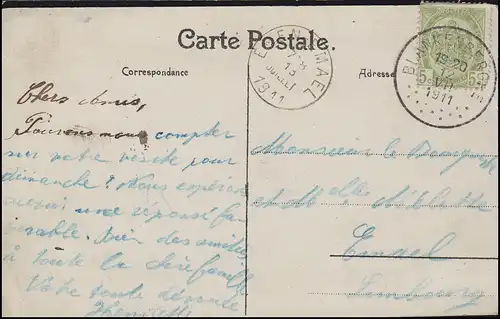 Carte Postale.
Correspondance
Adresse
EENEMAEL
13
JUILLET
1911
BLANKENBERGHE
19-20
12
VII
1911
5
5
Chers amis,
Pouvons nous compter
sur votre visite pour
dimanche? Nous espérons
une réponse fa
vorable. Bien des amitiés
à toute la chère famille
Votre toute dévouée
Monsieur le
et Melle
Limbourg